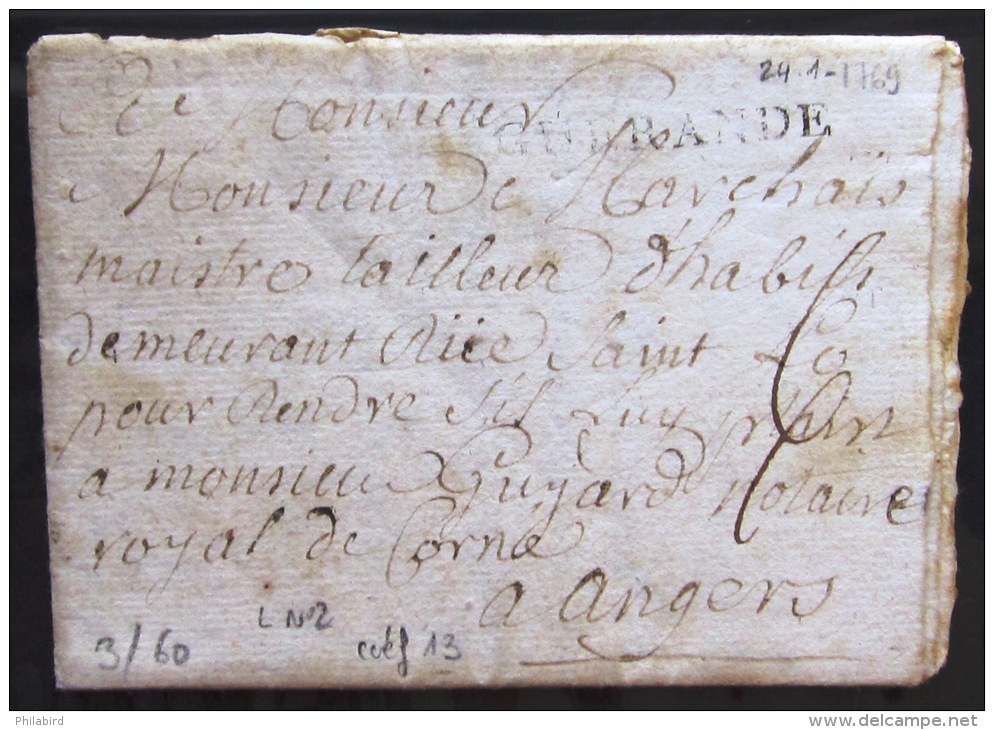 24-1-1769
A Monsieur
GUERANDE
Monsieur de Marchais
maistre tailleur d'habits
demeurant Rüe Saint Lo
pour Rendre s'il Luy plaist
a monsieur Guyard Notaire
royal de Corné
a angers
L N°2
3/60
coéf 13
Philabird
www.delcampe.net